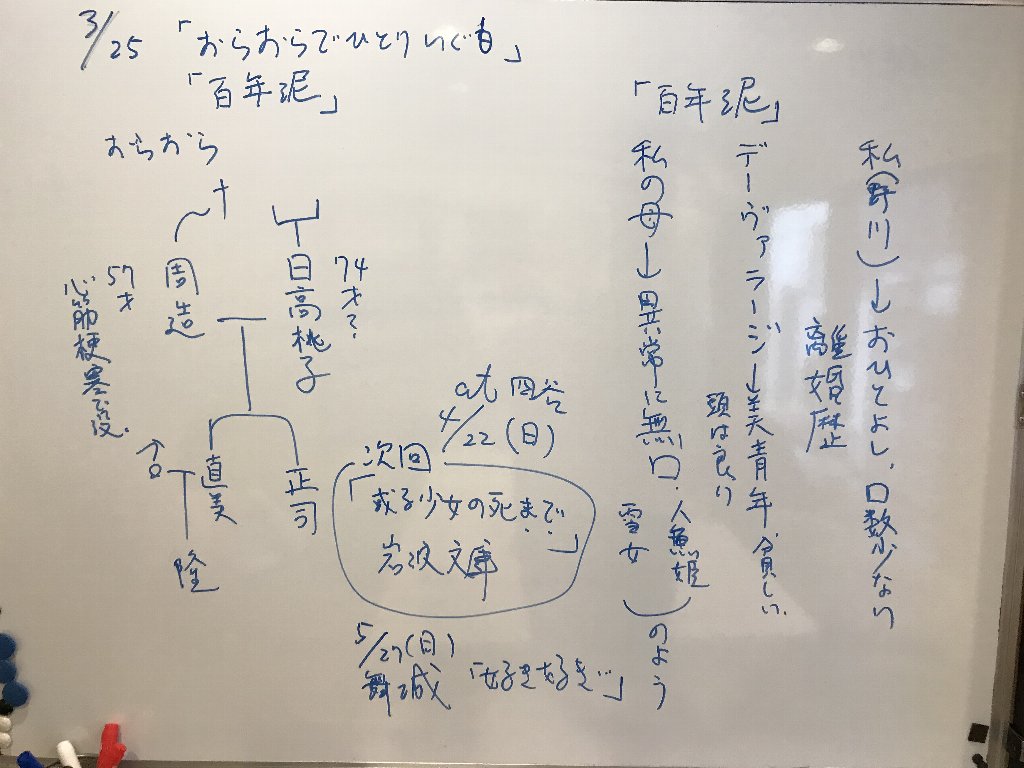 3/25 「おらおらでひとりいぐも」
「百年泥」
おらおら
日高桃子
74才?
周造
57才
心筋梗塞で没.
直美
正司
隆
at 四谷
4/22(日)
次回
「或る少女の死まで」
岩波文庫
5/27(日)
舞城 「好き好き…」
「百年泥」
私(野川)→おひとよし、口数少ない
離婚歴
デーヴァラージ→美青年 貧しい、
頭は良い
私の母→異常に無口、人魚姫
雪女
のよう